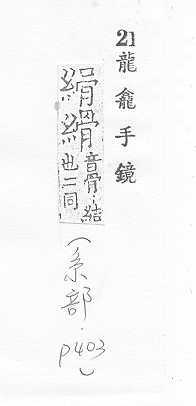 21 龍龕手鏡
縎 音骨〻結
也二同
(糸部. p403)